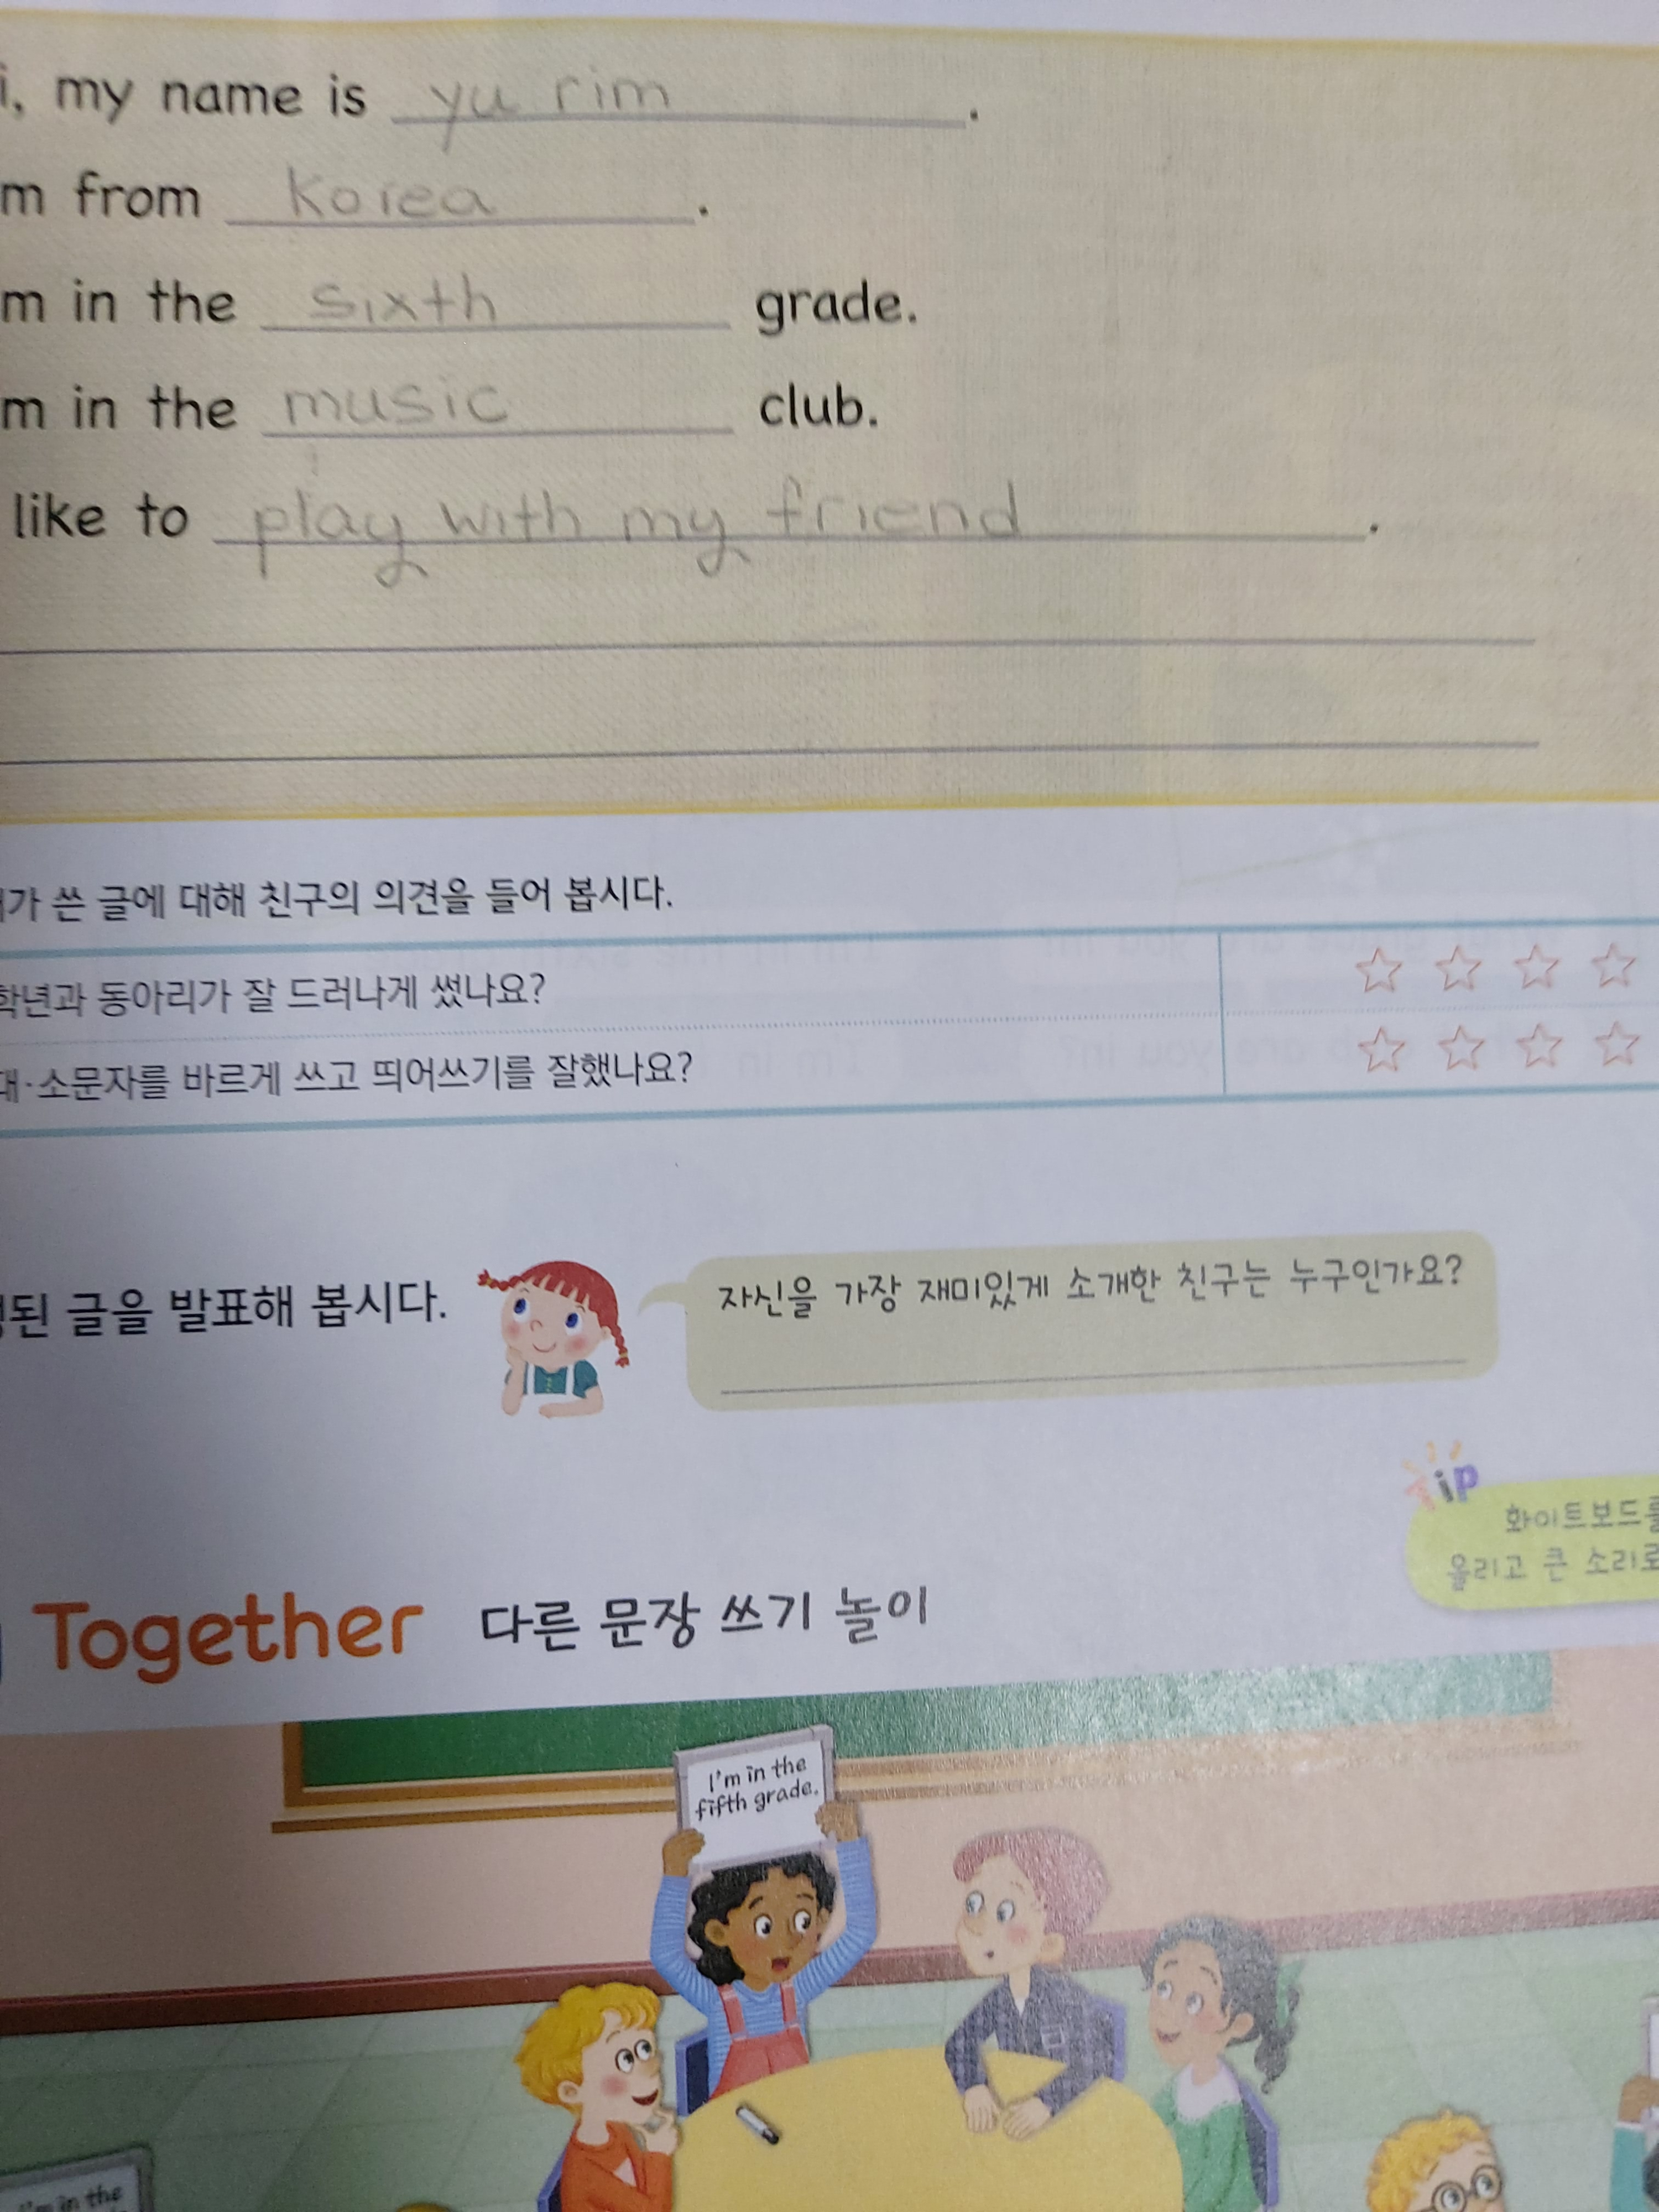 i, my name is yu rim.
m from Korea.
m in the sixth grade.
m in the music club.
like to play with my friend.
가 쓴 글에 대해 친구의 의견을 들어 봅시다.
학년과 동아리가 잘 드러나게 썼나요?
대·소문자를 바르게 쓰고 띄어쓰기를 잘했나요?
된 글을 발표해 봅시다.
자신을 가장 재미있게 소개한 친구는 누구인가요?
Tip
화이트보드를
올리고 큰 소리로
Together 다른 문장 쓰기 놀이
I'm in the
fifth grade.
I'm in the